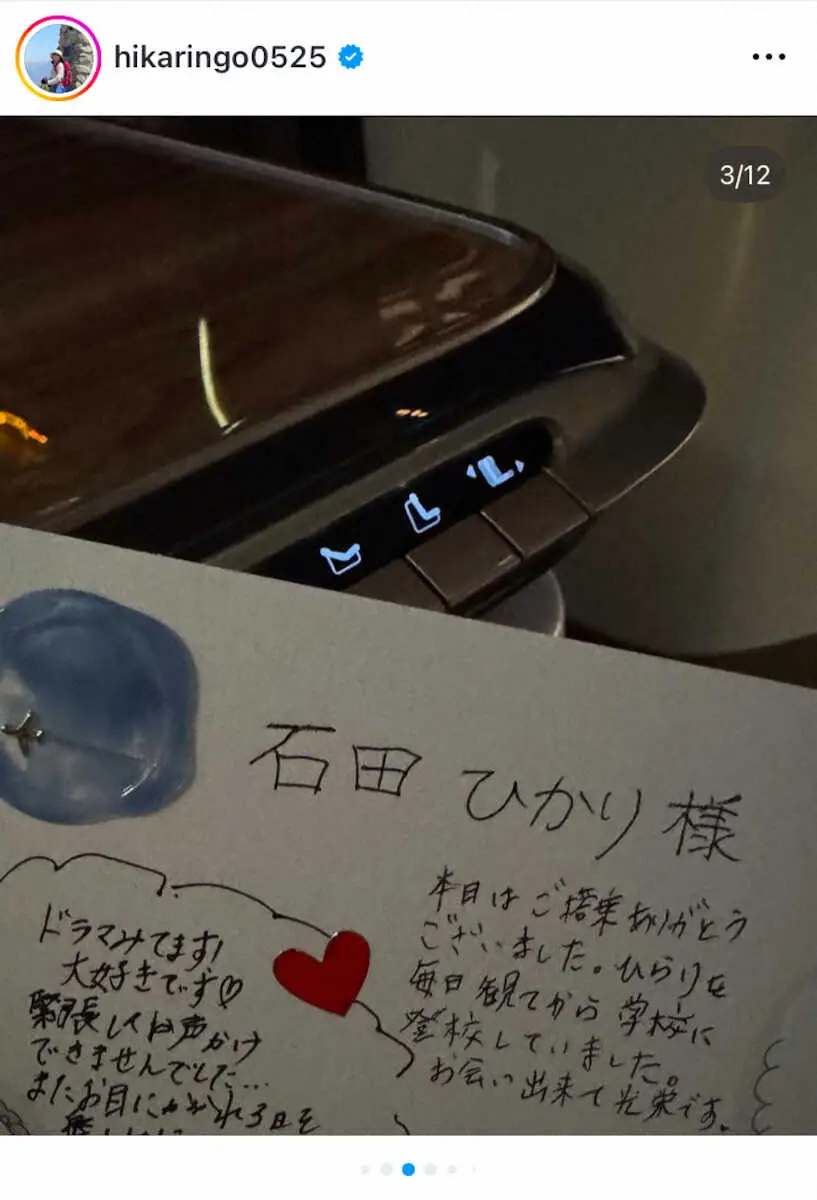 hikaringo0525
3/12
石田 ひかり 様
本日はご搭乗ありがとう
ございました。ひらりを
毎日観てから学校に
登校していました。
お会い出来て光栄です。
ドラマみてます!
大好きです♡
緊張してお声がけ
できませんでした…
またお目にかかれる日を